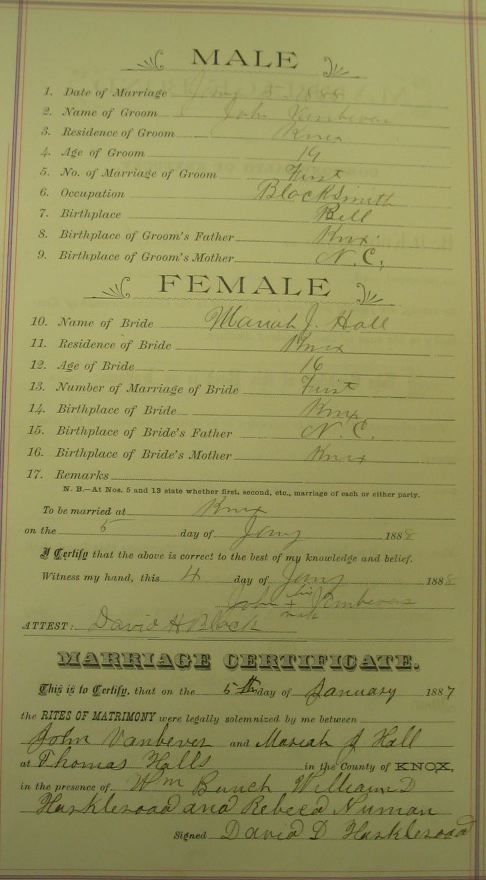 MALE
1. Date of Marriage Jany 5 1888
2. Name of Groom John Vanbever
3. Residence of Groom Knox
4. Age of Groom 19
5. No. of Marriage of Groom First
6. Occupation Blacksmith
7. Birthplace Bell
8. Birthplace of Groom's Father Knx.
9. Birthplace of Groom's Mother N.C.
FEMALE
10. Name of Bride Mariah J. Hall
11. Residence of Bride Knx
12. Age of Bride 16
13. Number of Marriage of Bride First
14. Birthplace of Bride Knx
15. Birthplace of Bride's Father N.C.
16. Birthplace of Bride's Mother Knx
17. Remarks
N. B.—At Nos. 5 and 13 state whether first, second, etc., marriage of each or either party.
To be married at Knx
on the 5 day of Jany 1888
I Certify that the above is correct to the best of my knowledge and belief.
Witness my hand, this 4 day of Jany 1888
his
John + Vanbever
mark
ATTEST: David H Black
MARRIAGE CERTIFICATE.
This is to Certify, that on the 5th day of January 1887
the RITES OF MATRIMONY were legally solemnized by me between
John Vanbever and Mariah J Hall
at Thomas Halls in the County of KNOX,
in the presence of Wm Bunch William D
Huskleroad and Rebeca Numan
Signed David D Huskleroad